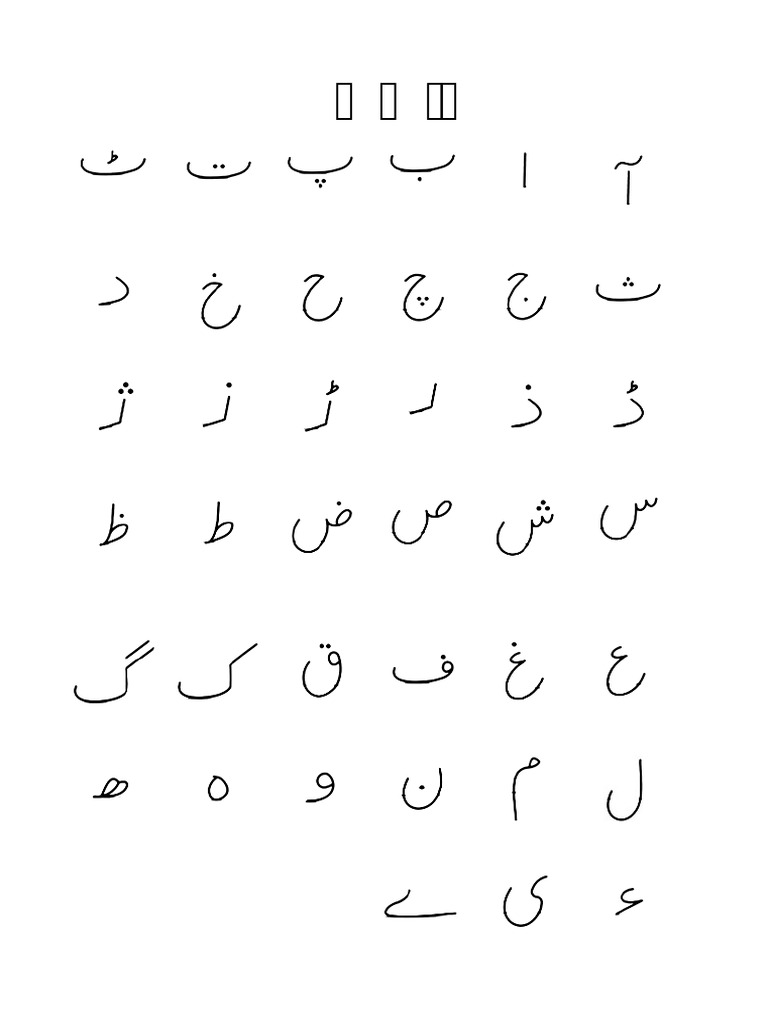 آ ا ب پ ت ٹ
ث ج چ ح خ د
ڈ ذ ر ڑ ز ژ
س ش ص ض ط ظ
ع غ ف ق ک گ
ل م ن و ہ ھ
ء ی ے